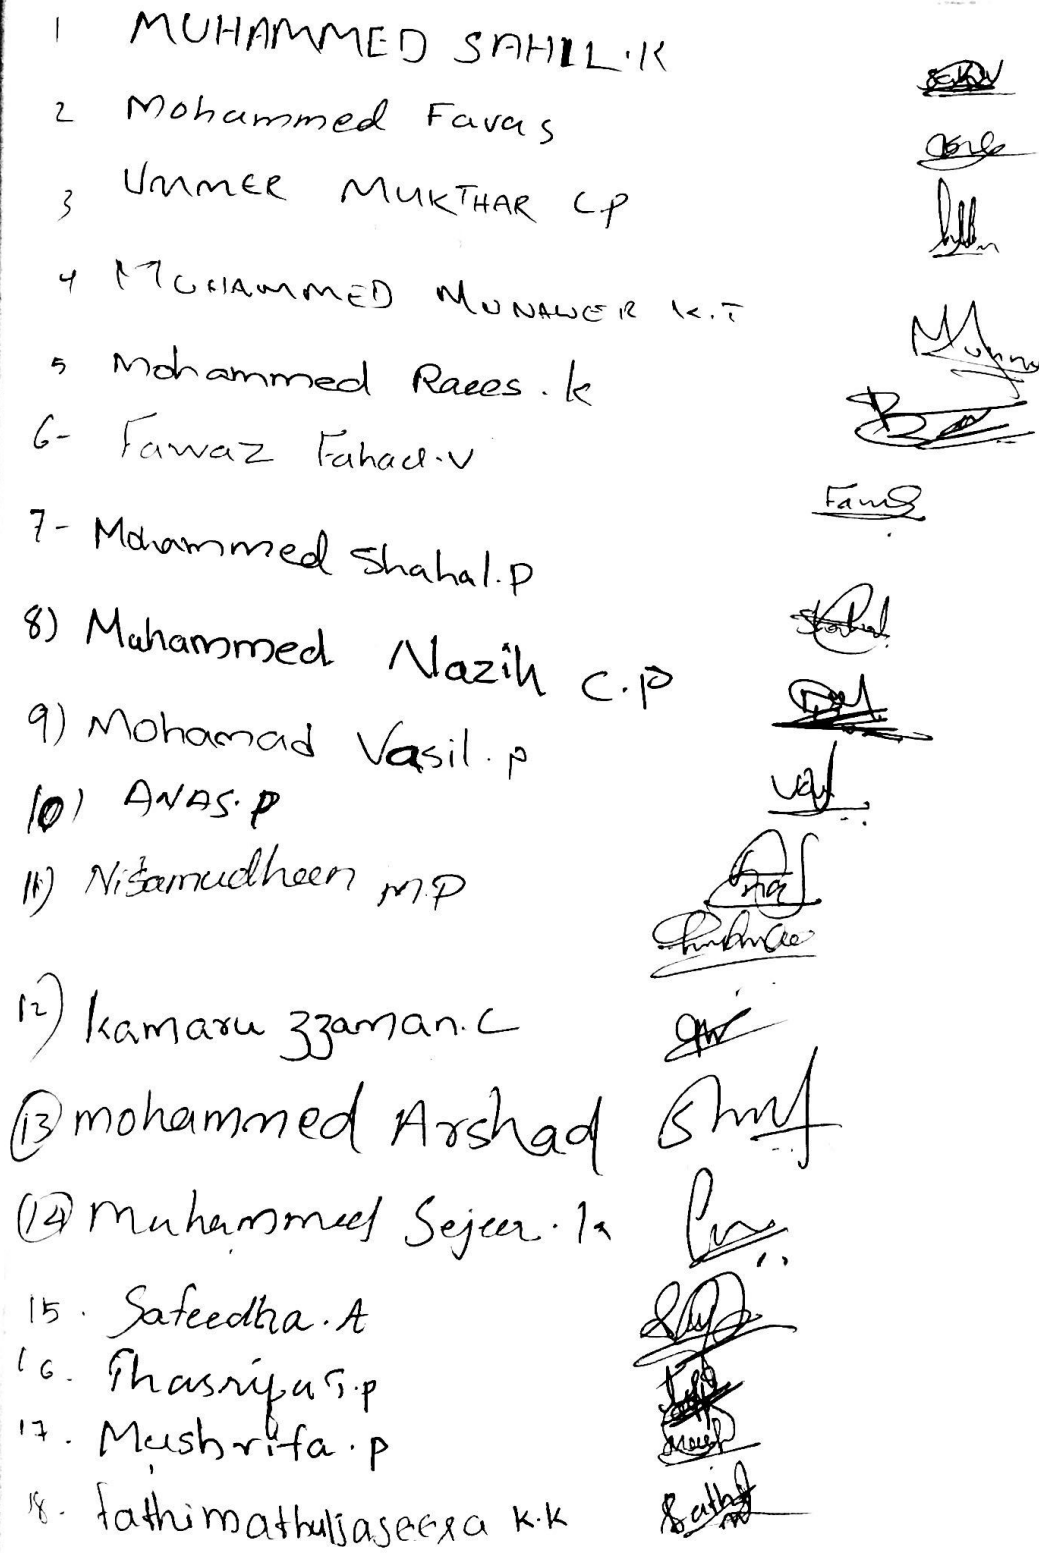 1 MUHAMMED SAHIL.K
2 Mohammed Favas
3 UMMER MUKTHAR CP
4 MUHAMMED MUNAWER K.T
5 Mohammed Raees.k
6- Fawaz Fahad.V
Fawz
7- Mohammed Shahal.P
8) Muhammed Nazih C.P
Shahal
9) Mohamad Vasil.p
10) ANAS.P
11) Nisamudheen M.P
12) Kamaru zzaman.C
13 mohammed Arshad
14 Muhammed Sejeer.k
15. Safeedha.A
16. Thasriya T.p
17. Mushrifa.p
18. fathimathuljaseera K.K